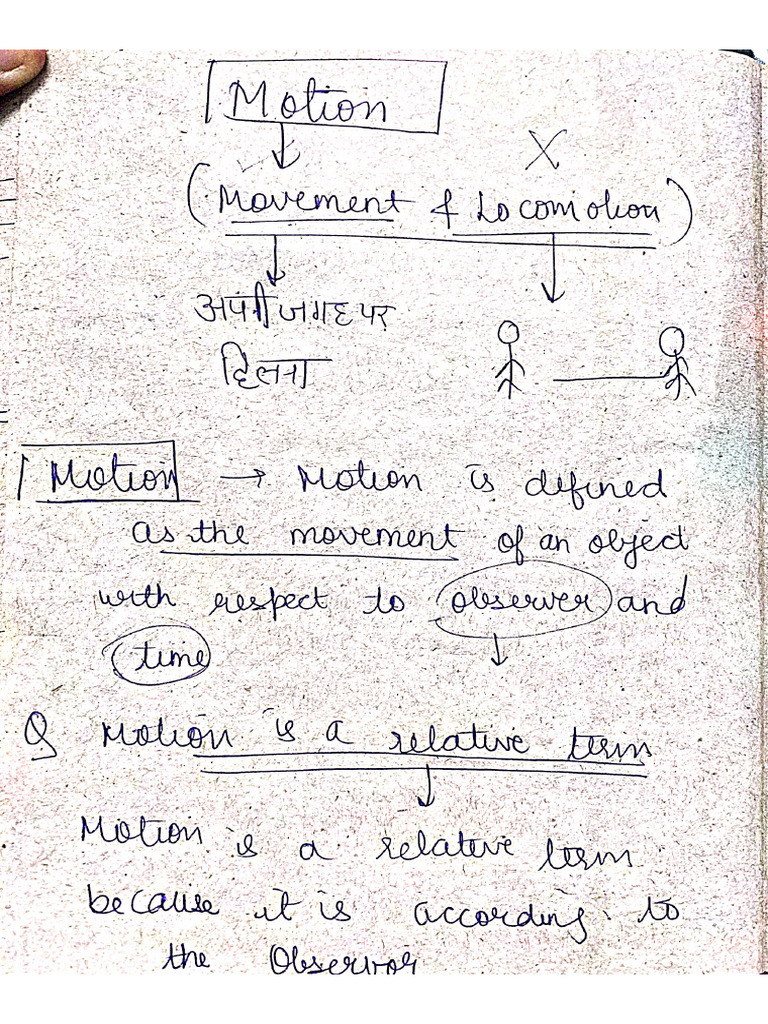 Motion
X
(Movement & Locomotion)
अपनी जगह पर
हिलना
Motion → Motion is defined
as the movement of an object
with respect to observer and
time
Q Motion is a relative term
Motion is a relative term
because it is according to
the Observor